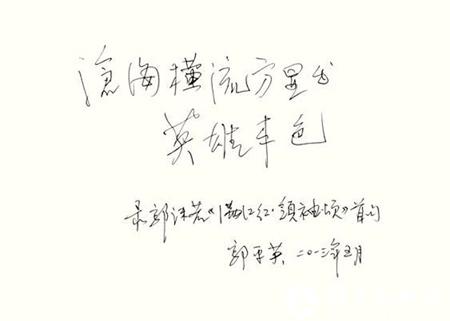 滄海横流方显出
英雄本色
录郭沫若《满江红·領袖颂》首句
郭平英 二〇一三年五月